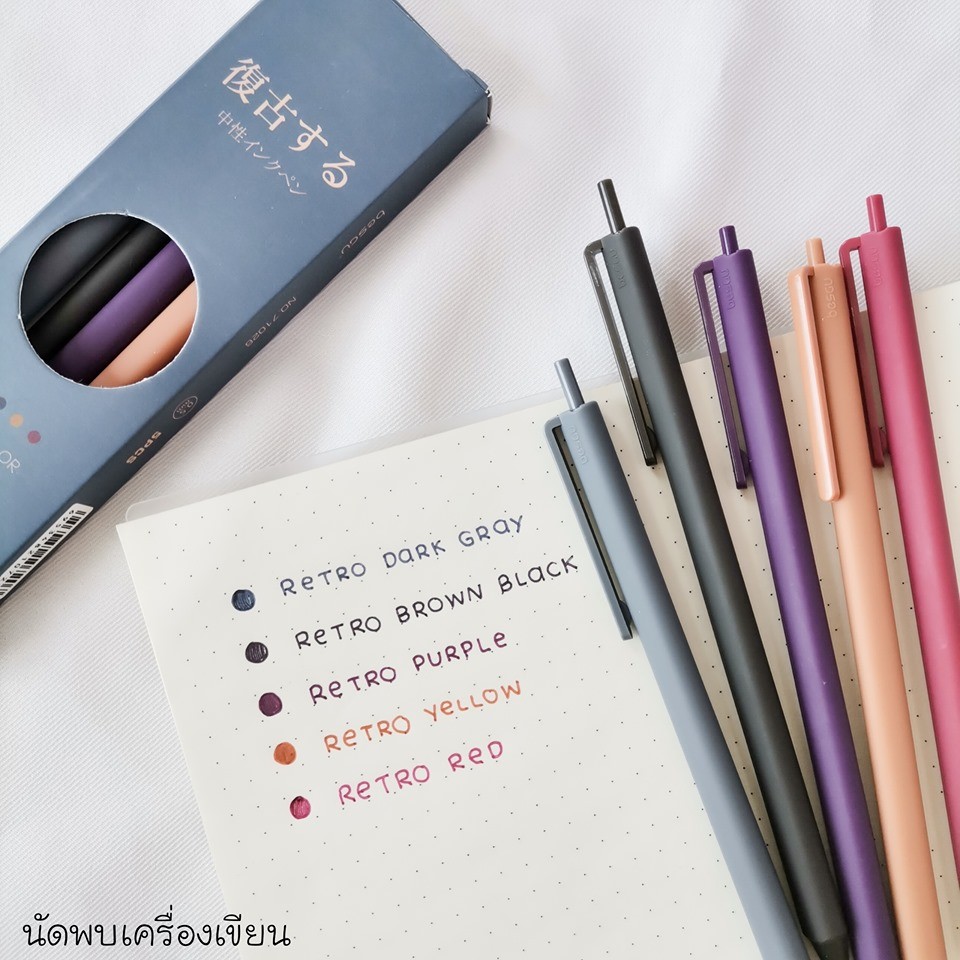 復古する
中性インクペン
basgu
NO.71026
0.5
5PCS
RETRO DARK GRAY
RETRO BROWN BLACK
RETRO PURPLE
RETRO YELLOW
RETRO RED
basgu
นัดพบเครื่องเขียน